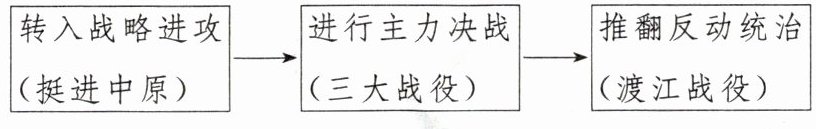 转入战略进攻
(挺进中原)
进行主力决战
(三大战役)
推翻反动统治
(渡江战役)